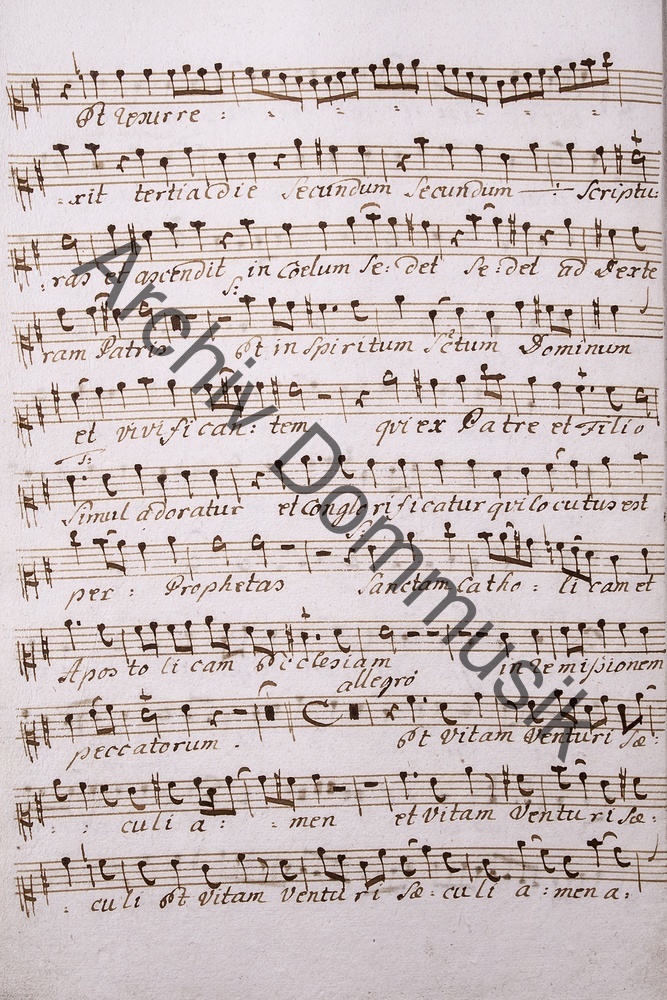 Et resurre :
: xit tertia die secundum secundum scriptu:
: ras et ascendit in Coelum se: det se: det ad dexte
S:
ram Patris Et in spiritum Sctum Dominum
et vivifican: tem qui ex Patre et Filio
T:
simul adoratur et Conglorificatur qui locutus est
per : Prophetas Sanctam Catho : li cam et
Aposto li cam Ecclesiam in remissionem
allegro
peccatorum . Et Vitam Venturi sæ:
: culi a : men et Vitam Venturi sæ:
: culi Et Vitam Venturi sæ: culi a : men a:
Archiv Dommusik